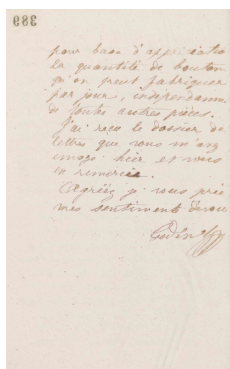 389
pour base d'appréciatio
la quantité de bouton
qu'on peut fabriquer
par jour, independamm
de toutes autres pièces.
J'ai reçu le dossier de
lettres que vous m'avez
envoyé hier et vous
en remercie.
Agréez je vous prie
mes sentiments devoués